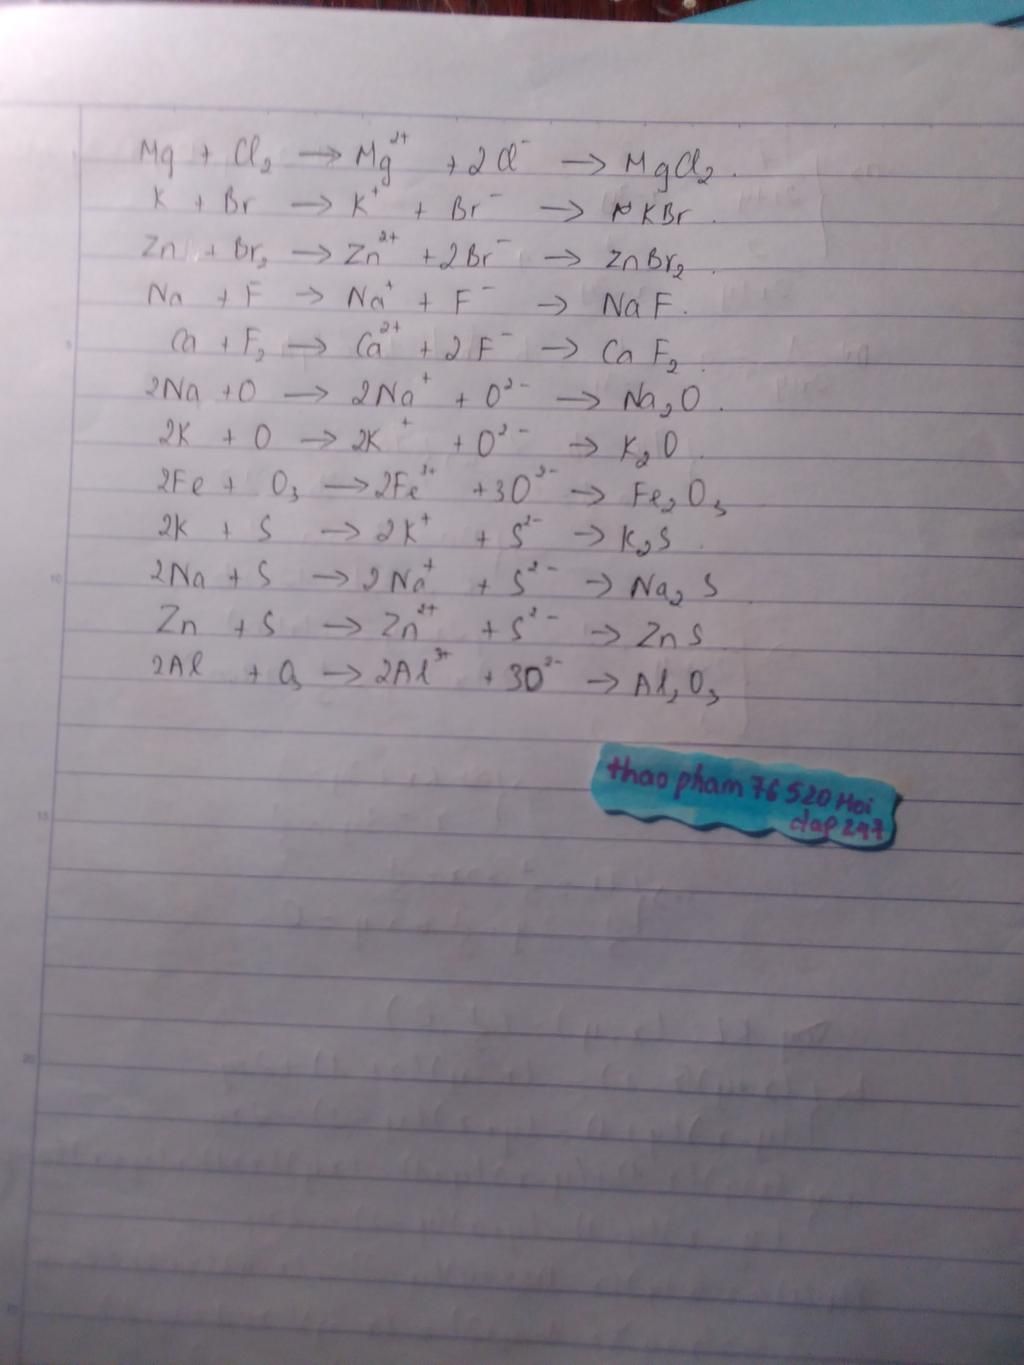 Mg + Cl₂ → Mg²⁺ + 2Cl⁻ → MgCl₂.
K + Br → K⁺ + Br⁻ → KBr.
Zn + Br₂ → Zn²⁺ + 2Br⁻ → ZnBr₂.
Na + F → Na⁺ + F⁻ → NaF.
Ca + F₂ → Ca²⁺ + 2F⁻ → CaF₂.
2Na + O → 2Na⁺ + O²⁻ → Na₂O.
2K + O → 2K⁺ + O²⁻ → K₂O.
2Fe + O₃ → 2Fe³⁺ + 3O²⁻ → Fe₂O₃
2K + S → 2K⁺ + S²⁻ → K₂S.
2Na + S → 2Na⁺ + S²⁻ → Na₂S
Zn + S → Zn²⁺ + S²⁻ → ZnS
2Al + O₃ → 2Al³⁺ + 3O²⁻ → Al₂O₃
thao pham 76 520 Hoi
dap 247